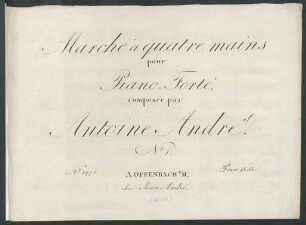 Marche à quatre mains
pour
Piano-Forté,
composée par
Antoine André.
A OFFENBACH s/M,
chez Jean André.